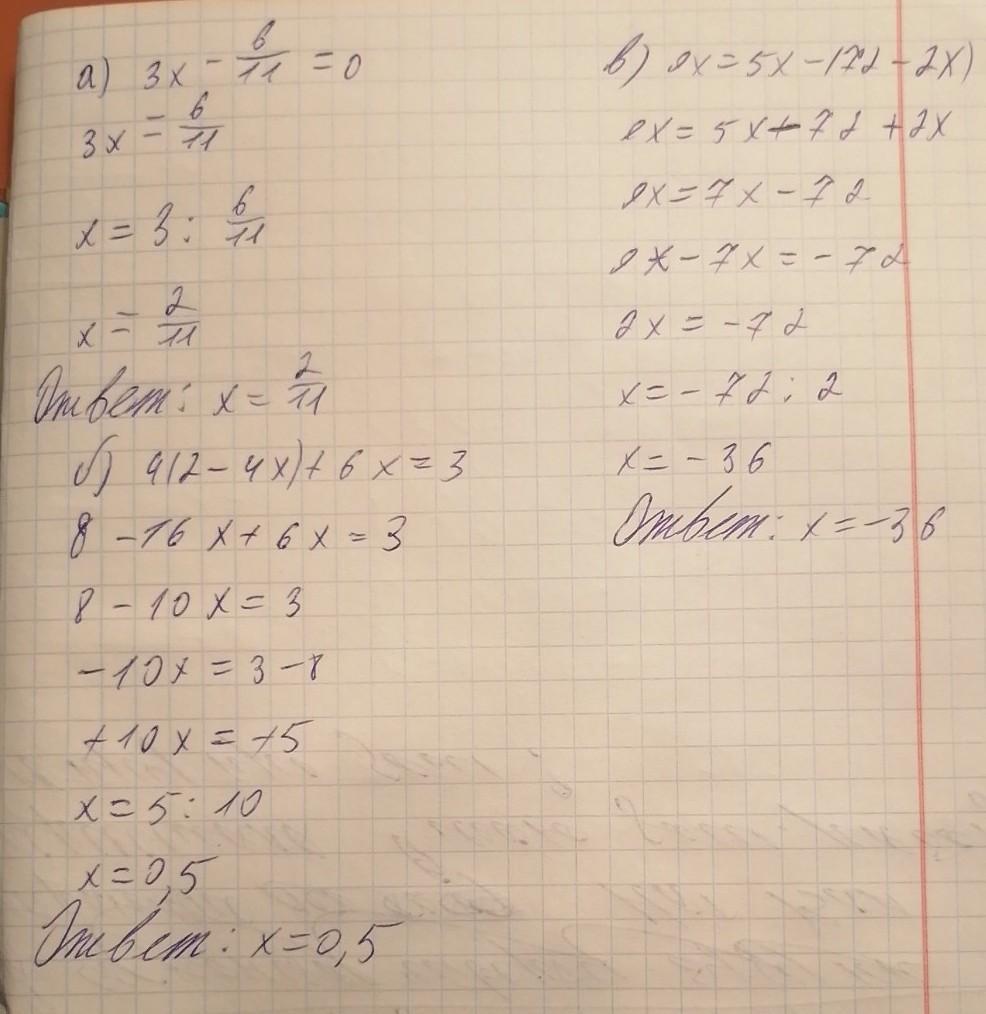 а) 3x - 6/11 = 0
3x = 6/11
x = 3 : 6/11
x = 2/11
Ответ: x = 2/11
б) 4(2 - 4x) + 6x = 3
8 - 16x + 6x = 3
8 - 10x = 3
-10x = 3 - 8
+10x = +5
x = 5 : 10
x = 0,5
Ответ: x = 0,5
в) 9x = 5x - (72 - 2x)
9x = 5x - 72 + 2x
9x = 7x - 72
9x - 7x = -72
2x = -72
x = -72 : 2
x = -36
Ответ: x = -36